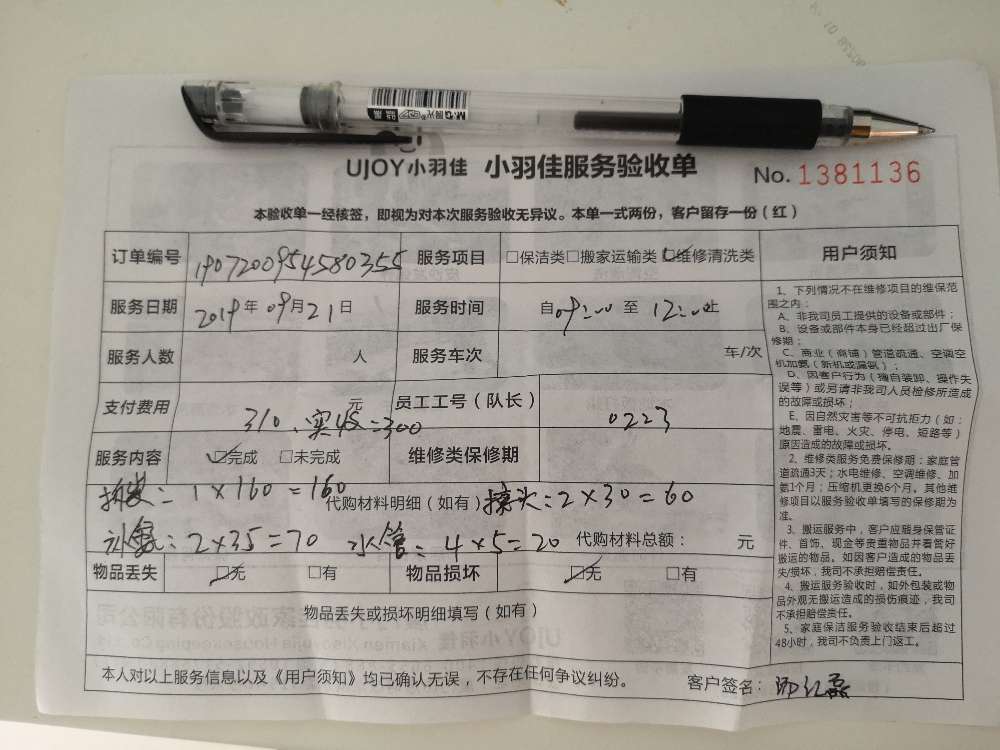 M&G 晨光
UJOY小羽佳 小羽佳服务验收单 No. 1381136
本验收单一经核签，即视为对本次服务验收无异议。本单一式两份，客户留存一份（红）
订单编号 190720095458035 5 服务项目 □保洁类□搬家运输类☑维修清洗类
服务日期 2019年09月21日 服务时间 自09:00至12:00止
服务人数 人 服务车次 车/次
支付费用 310、实收=300 元 员工工号（队长） 0223
服务内容 ☑完成 □未完成 维修类保修期
拆装：1×160=160 代购材料明细（如有）接头：2×30=60
补氟：2×35=70 水管：4×5=20 代购材料总额： 元
物品丢失 ☑无 □有 物品损坏 ☑无 □有
物品丢失或损坏明细填写（如有）
本人对以上服务信息以及《用户须知》均已确认无误，不存在任何争议纠纷。 客户签名：
用户须知
1、下列情况不在维修项目的维保范
围之内：
A、非我司员工提供的设备或部件；
B、设备或部件本身已经超过出厂保
修期；
C、商业（商铺）管道疏通、空调空
机加氨（新机或漏氨）；
D、因客户行为（擅自装卸、操作失
误等）或另请非我司人员检修所造成
的故障或损坏；
E、因自然灾害等不可抗拒力（如：
地震、雷电、火灾、停电、短路等）
原因造成的故障或损坏。
2、维修类服务免费保修期：家庭管
道疏通3天；水电维修、空调维修、加
氨1个月；压缩机更换6个月。其他维
修项目以服务验收单填写的保修期为
准。
3、搬运服务中，客户应随身保管证
件、首饰、现金等贵重物品并看管好
搬运的物品。如因客户造成的物品丢
失/损坏，我司不承担赔偿责任。
4、搬运服务验收时，如外包装或物
品外观无搬运造成的损伤痕迹，我司
不承担赔偿责任。
5、家庭保洁服务验收结束后超过
48小时，我司不负责上门返工。